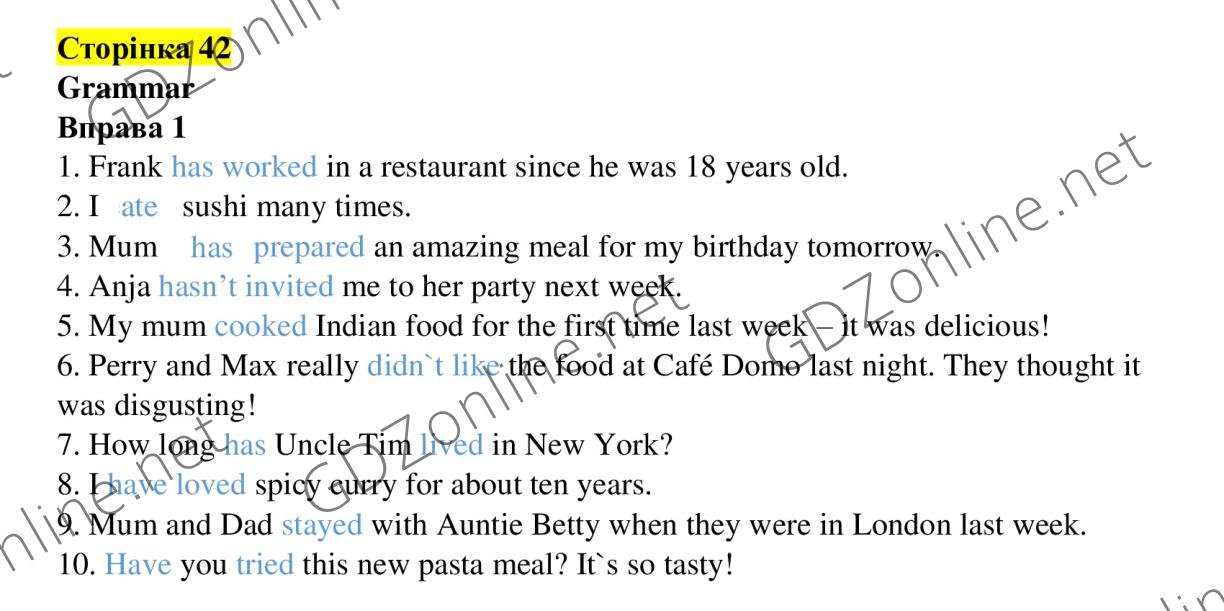 Сторінка 42
Grammar
Вправа 1
1. Frank has worked in a restaurant since he was 18 years old.
2. I ate sushi many times.
3. Mum has prepared an amazing meal for my birthday tomorrow.
4. Anja hasn’t invited me to her party next week.
5. My mum cooked Indian food for the first time last week – it was delicious!
6. Perry and Max really didn`t like the food at Café Domo last night. They thought it
was disgusting!
7. How long has Uncle Tim lived in New York?
8. I have loved spicy curry for about ten years.
9. Mum and Dad stayed with Auntie Betty when they were in London last week.
10. Have you tried this new pasta meal? It`s so tasty!
GDZonline.net
GDZonline.net